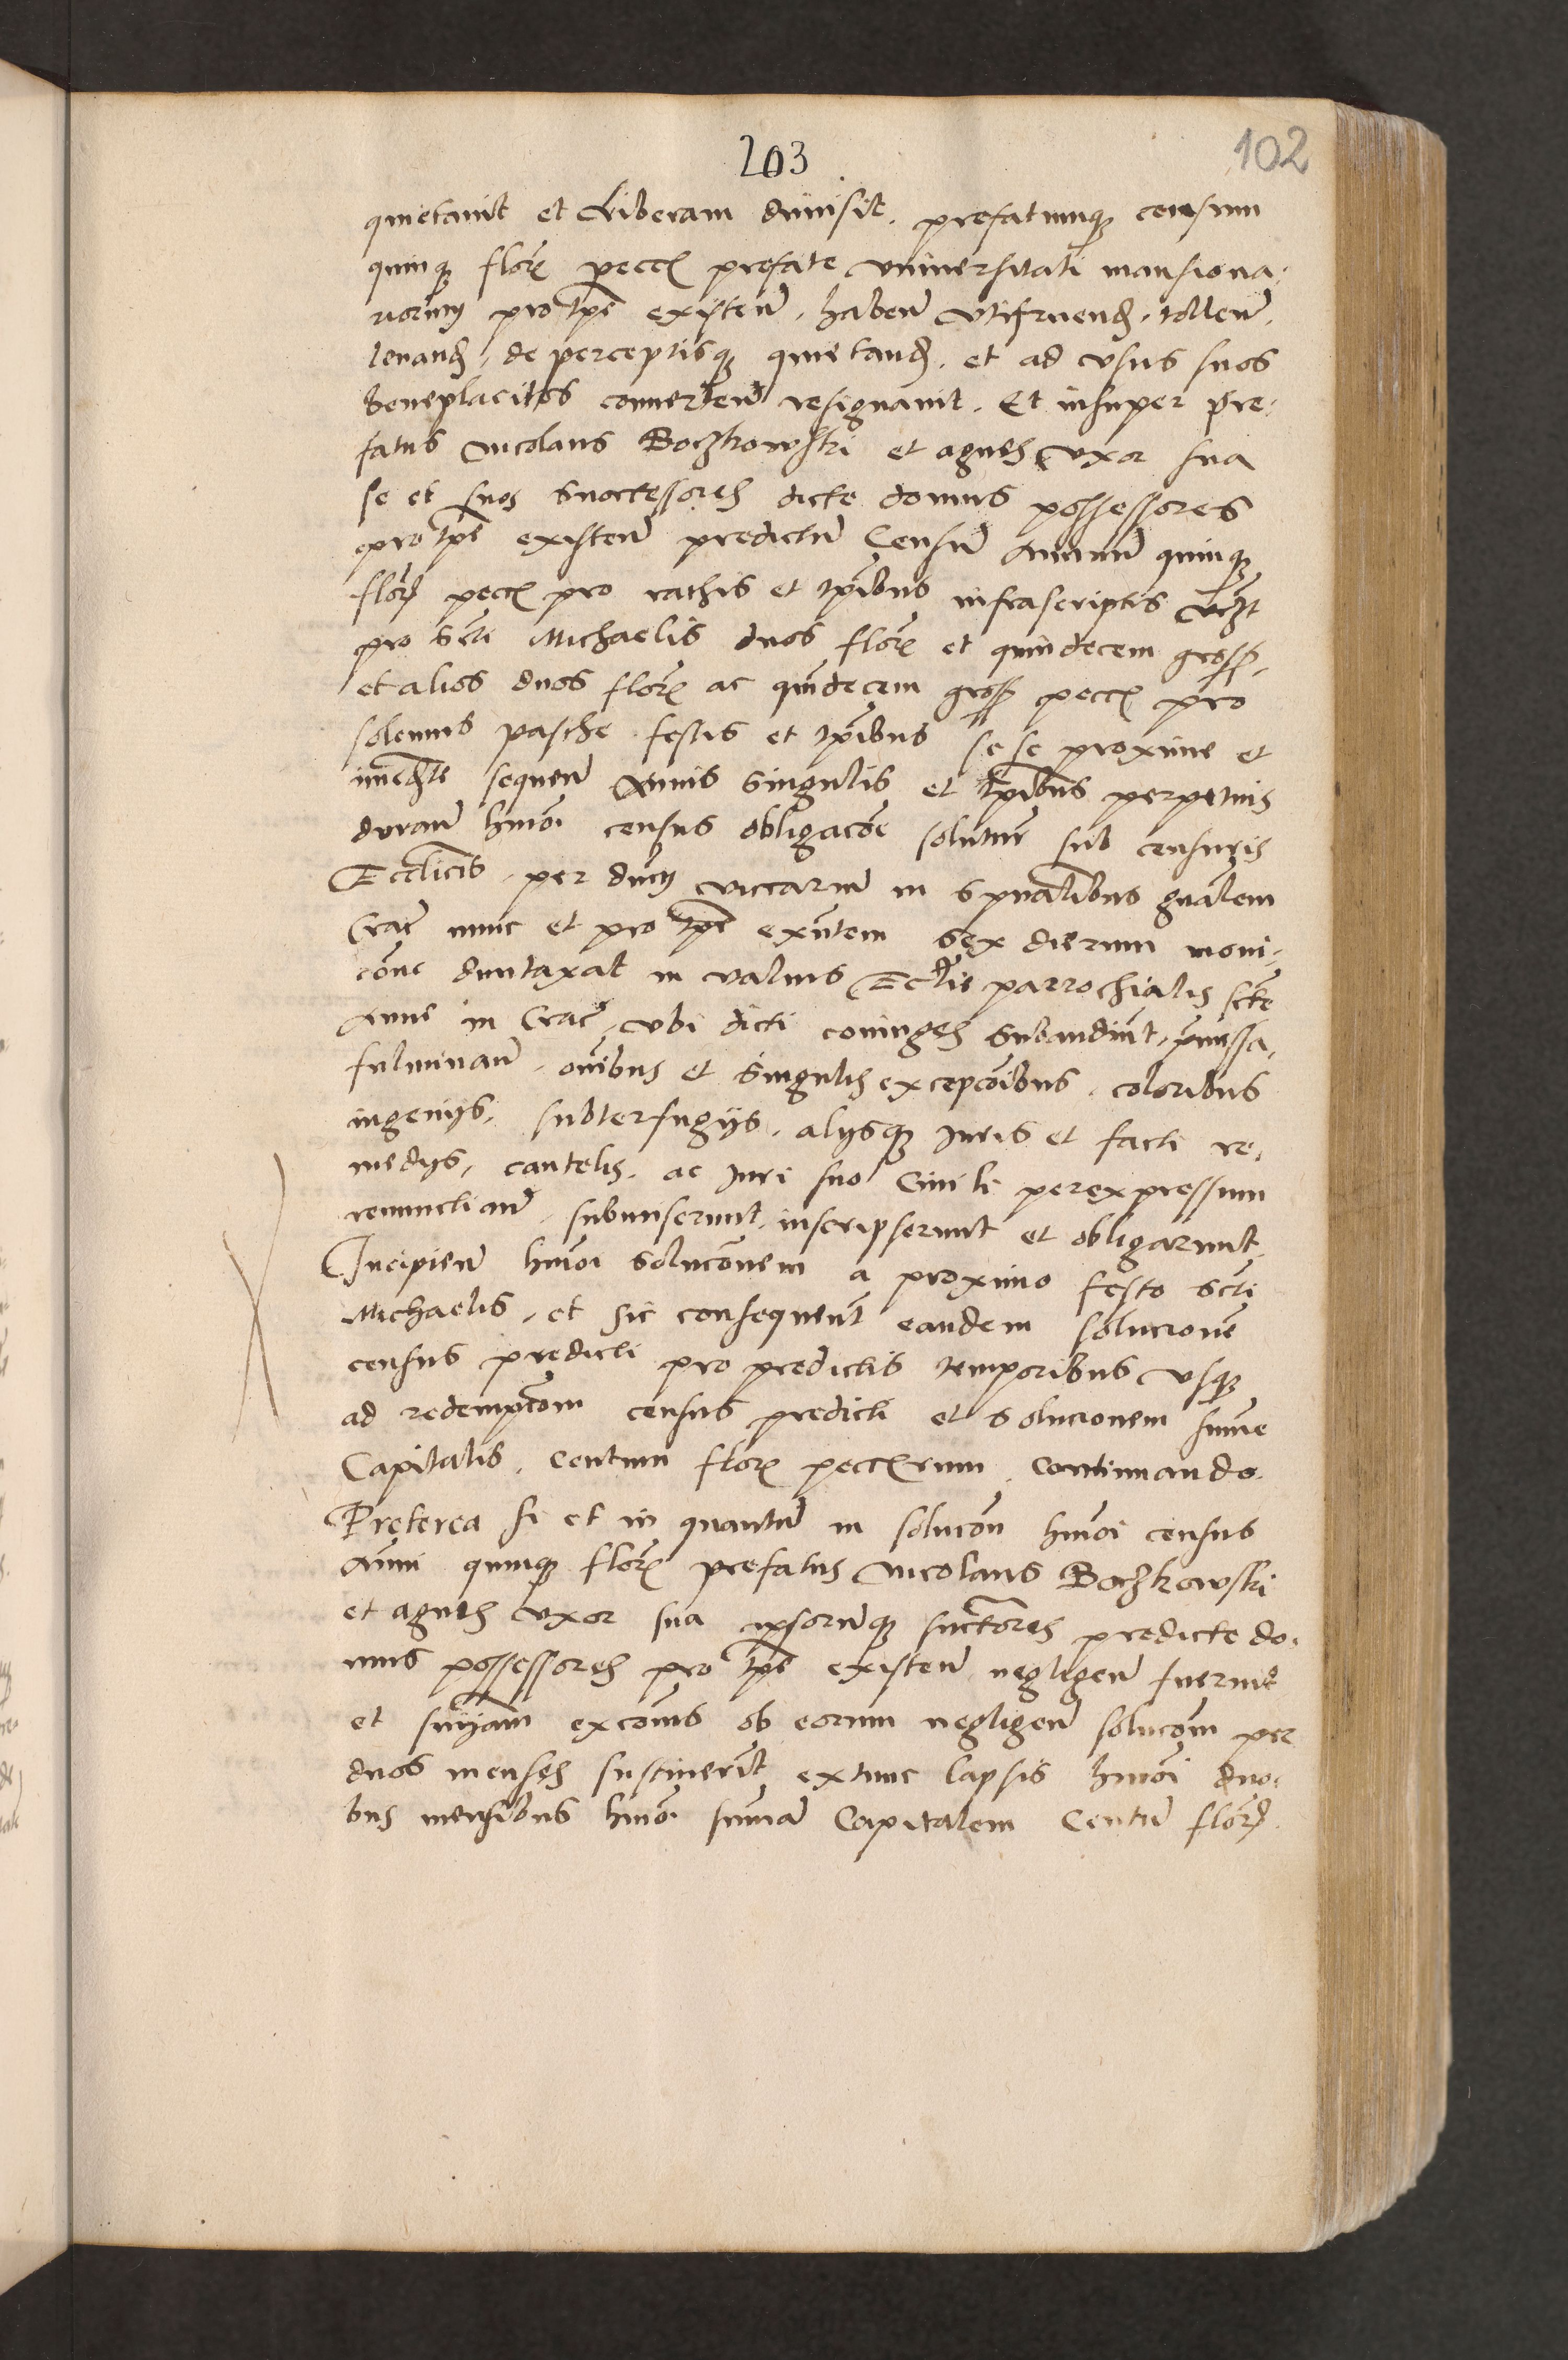 203
102
quietavit et Liberam dimisit. prefatumq censum
quinq flor pecc prefate universitati mansiona-
riorum pro tpe existen. haben utifruend. tollen.
levand. de perceptisq quietand. et ad usus suos
beneplacitos converten resignavit. Et insuper pre-
fatus Nicolaus Boczkowski et agnes uxor sua
se et suos successores dicte domus possessores
pro tpe existen predictu Censu annuu quinq
flor pecc pro rathis et tpibus infrascriptis vczt
pro scti Michaelis duos flor et quindecem gross.
et alios duos flor ac quindecem gross pecc pro
solenis pasche festis et tpibus sese proxime et
imediate sequen Annis singulis et tpibus perpetuis
duran hmoi census obligacoe solutur sub censuris
Ecclicis. per dnum vicarium in spualibus gnalem
Crac nunc et pro tpe existentem sex dierum moni-
cone duntaxat in valvis Ecclie parrochialis scte
Anne in Crac, ubi dicti coniuges subaudiut, pmissa.
fulminan. oibus et singulis excepcoibus. coloribus
ingenijs. subterfugijs. alijsq Juris et facti re-
medijs, cautelis. ac Juri suo Civili per expressum
renunctian. submiserunt. inscripserunt et obligarunt.
Incipien hmoi solucionem a proximo festo scti
Michaelis. et sic consequent eandem solucione
census predicti pro predictis temporibus usq
ad redempcom census predicti et solucionem sume
Capitalis. Centum flor peccrum. Continuando.
Preterea si et in quantu in solucoe hmoi census
Annui quinq flor prefatus Nicolaus Boczkowski
et agnes uxor sua ipsorumq succores predicte do-
mus possessores pro tpe existen negligen fuerint
et snijam excois ob eorum negligen solucom per
duos menses sustinerit extunc lapsis hmoi duo-
bus mensibus hmoi suma Capitalem Centu flor.